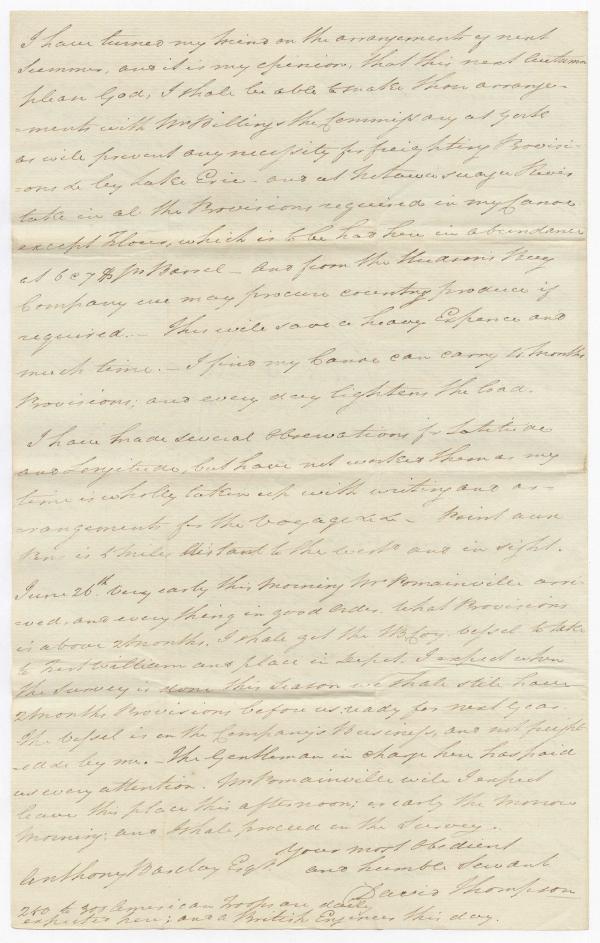 I have turned my mind on the arrangements of next
Summer, and it is my opinion, that this next Autumn
please God, I shall be able to make those arrange-
-ments with Mr Billings the Commissary at York
as will prevent any necessity for freighting Provisi-
-ons &c by Lake Erie - and at River
take in all the Provisions required in my Canoe
except Flour, which is to be had here in abundance
at 6 @ 7 $ pr Barrel - and from the Hudsons Bay
Company we may procure country produce if
required. - This will save a heavy Expence and
much time. - I find my Canoe can carry months
Provisions; and every day lightens the load.
I have made several Observations for Latitude
and Longitude, but have not worked them as my
time is wholly taken up with writing and ar-
-rangements for the Voyage &c &c - Point aux
Pins is 5 Miles distant to the west and in sight.
June 26th Very early this Morning Mr Romainville arri-
-ved, and every thing in good Order. What Provisions
is above 2 Months, I shall get the HBCoy. vessel to take
to Fort William and place in Depot. I expect when
the Survey is done this Season we shall still have
2 Months Provisions before us, ready for next Year.
The Vessel is on the Company's Business, and not freight-
-ed &c by me. - The Gentleman in charge here has paid
us every attention. Mr Romainville will I expect
leave this place this afternoon; or early the Morrow
Morning: and I shall proceed on the Survey.
Your most Obedient
Anthony Barclay Esqr. and humble Servant
David Thompson
250 to 300 American Troops are daily
expected here; and a British Engineer this day.